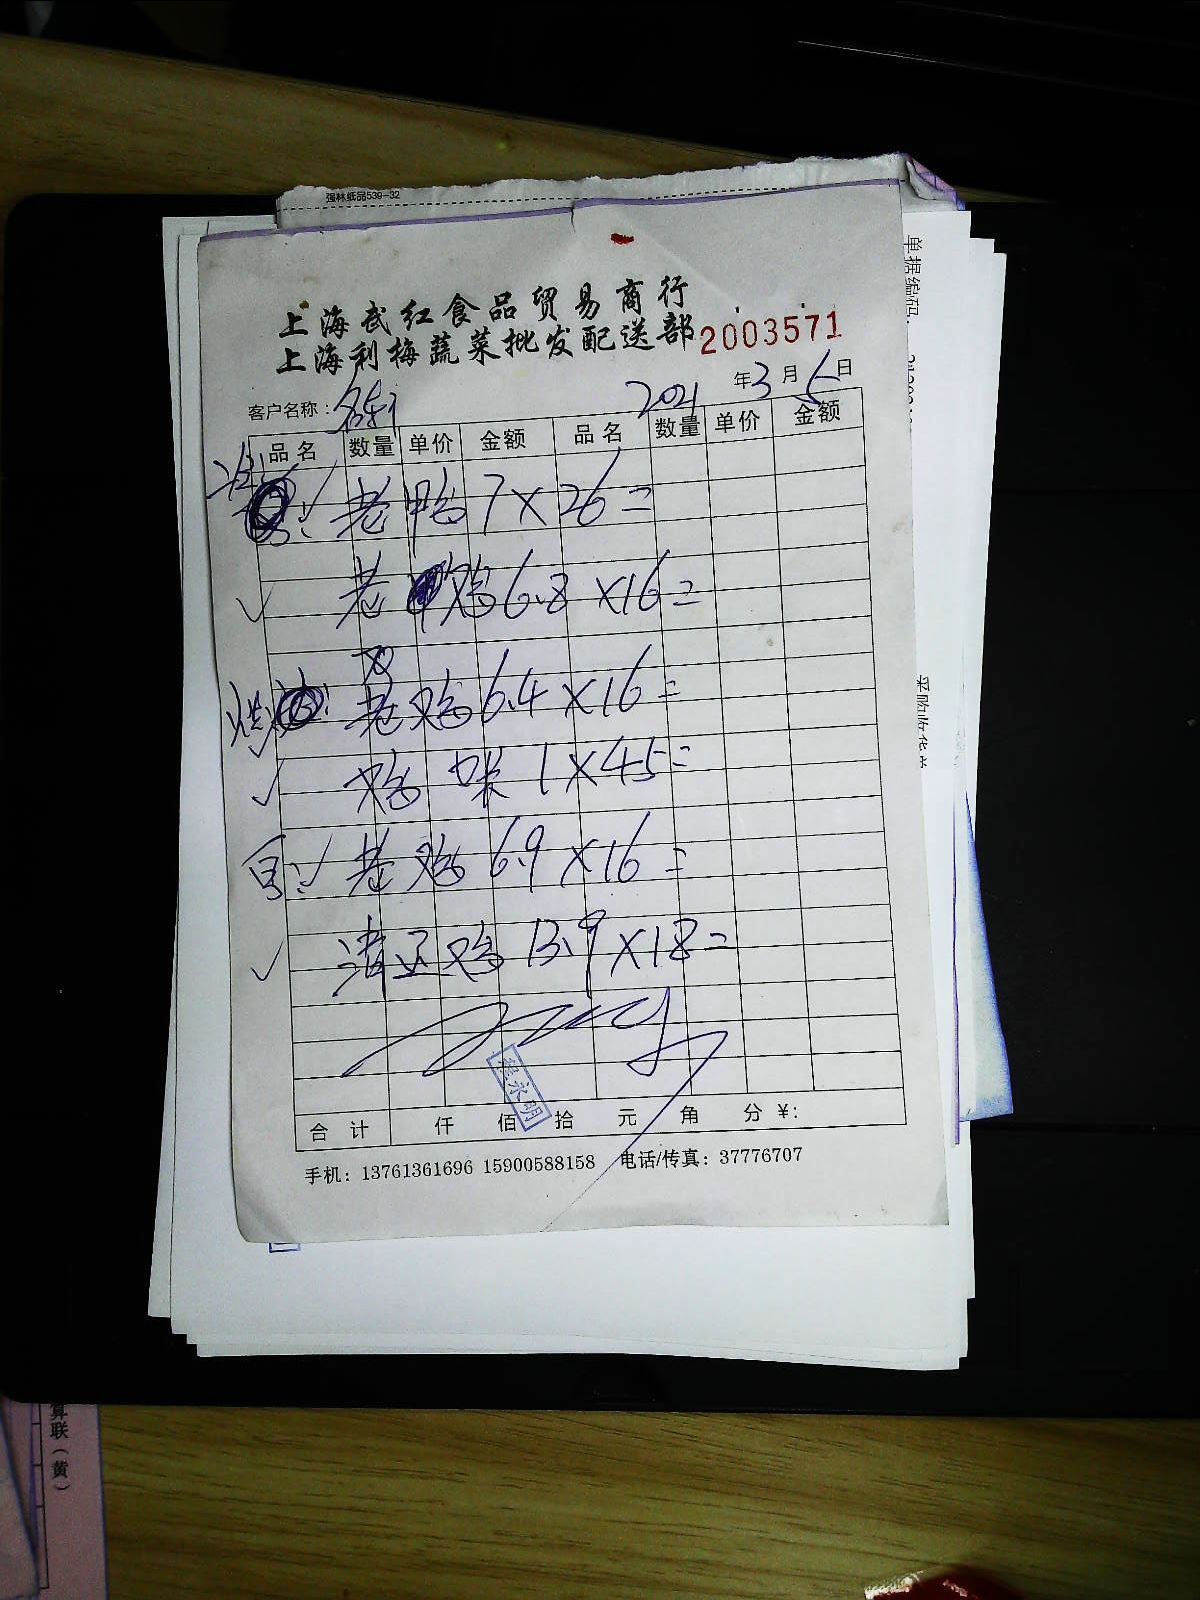 强林纸品539-32
上海武红食品贸易商行
上海利梅蔬菜批发配送部 2003571
客户名称： 2021 年 3 月 5 日
品名 数量 单价 金额 品名 数量 单价 金额
老鸭 7×26=
老鸡 6.8×16=
老鸡 6.4×16=
鸡 1×45=
老鸡 6.9×16=
清远鸡 13.9×18=
程永明
合计 仟 佰 拾 元 角 分 ¥：
手机：13761361696 15900588158 电话/传真：37776707
单据编码：
算联（黄）